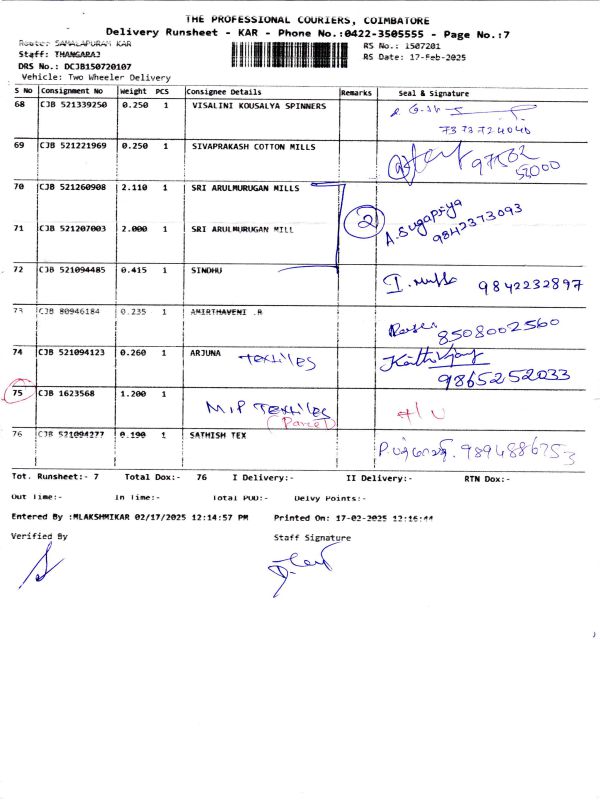 THE PROFESSIONAL COURIERS, COIMBATORE
Delivery Runsheet - KAR - Phone No.:0422-3505555 - Page No.:7
Route: SAMALAPURAM KAR
RS No.: 1507201
Staff: THANGARAJ
RS Date: 17-Feb-2025
DRS No.: DCJB150720107
Vehicle: Two Wheeler Delivery
S No Consignment No Weight PCS Consignee Details Remarks Seal & Signature
68 CJB 521339250 0.250 1 VISALINI KOUSALYA SPINNERS
7373724046
69 CJB 521221969 0.250 1 SIVAPRAKASH COTTON MILLS
97502 52000
70 CJB 521260908 2.110 1 SRI ARULMURUGAN MILLS
2 A. Sugapriya
9842373093
71 CJB 521207003 2.000 1 SRI ARULMURUGAN MILL
72 CJB 521094485 0.415 1 SINDHU
9842232897
73 CJB 80946184 0.235 1 AMIRTHAVENI .R
8508002560
74 CJB 521094123 0.260 1 ARJUNA Textiles
9865252033
75 CJB 1623568 1.200 1
M.P Textiles
(Parcel)
76 CJB 521094277 0.190 1 SATHISH TEX
9894886753
Tot. Runsheet:- 7 Total Dox:- 76 I Delivery:- II Delivery:- RTN Dox:-
Out Time:- In Time:- Total POD:- Delvy Points:-
Entered By :MLAKSHMIKAR 02/17/2025 12:14:57 PM Printed On: 17-02-2025 12:16:44
Verified By Staff Signature